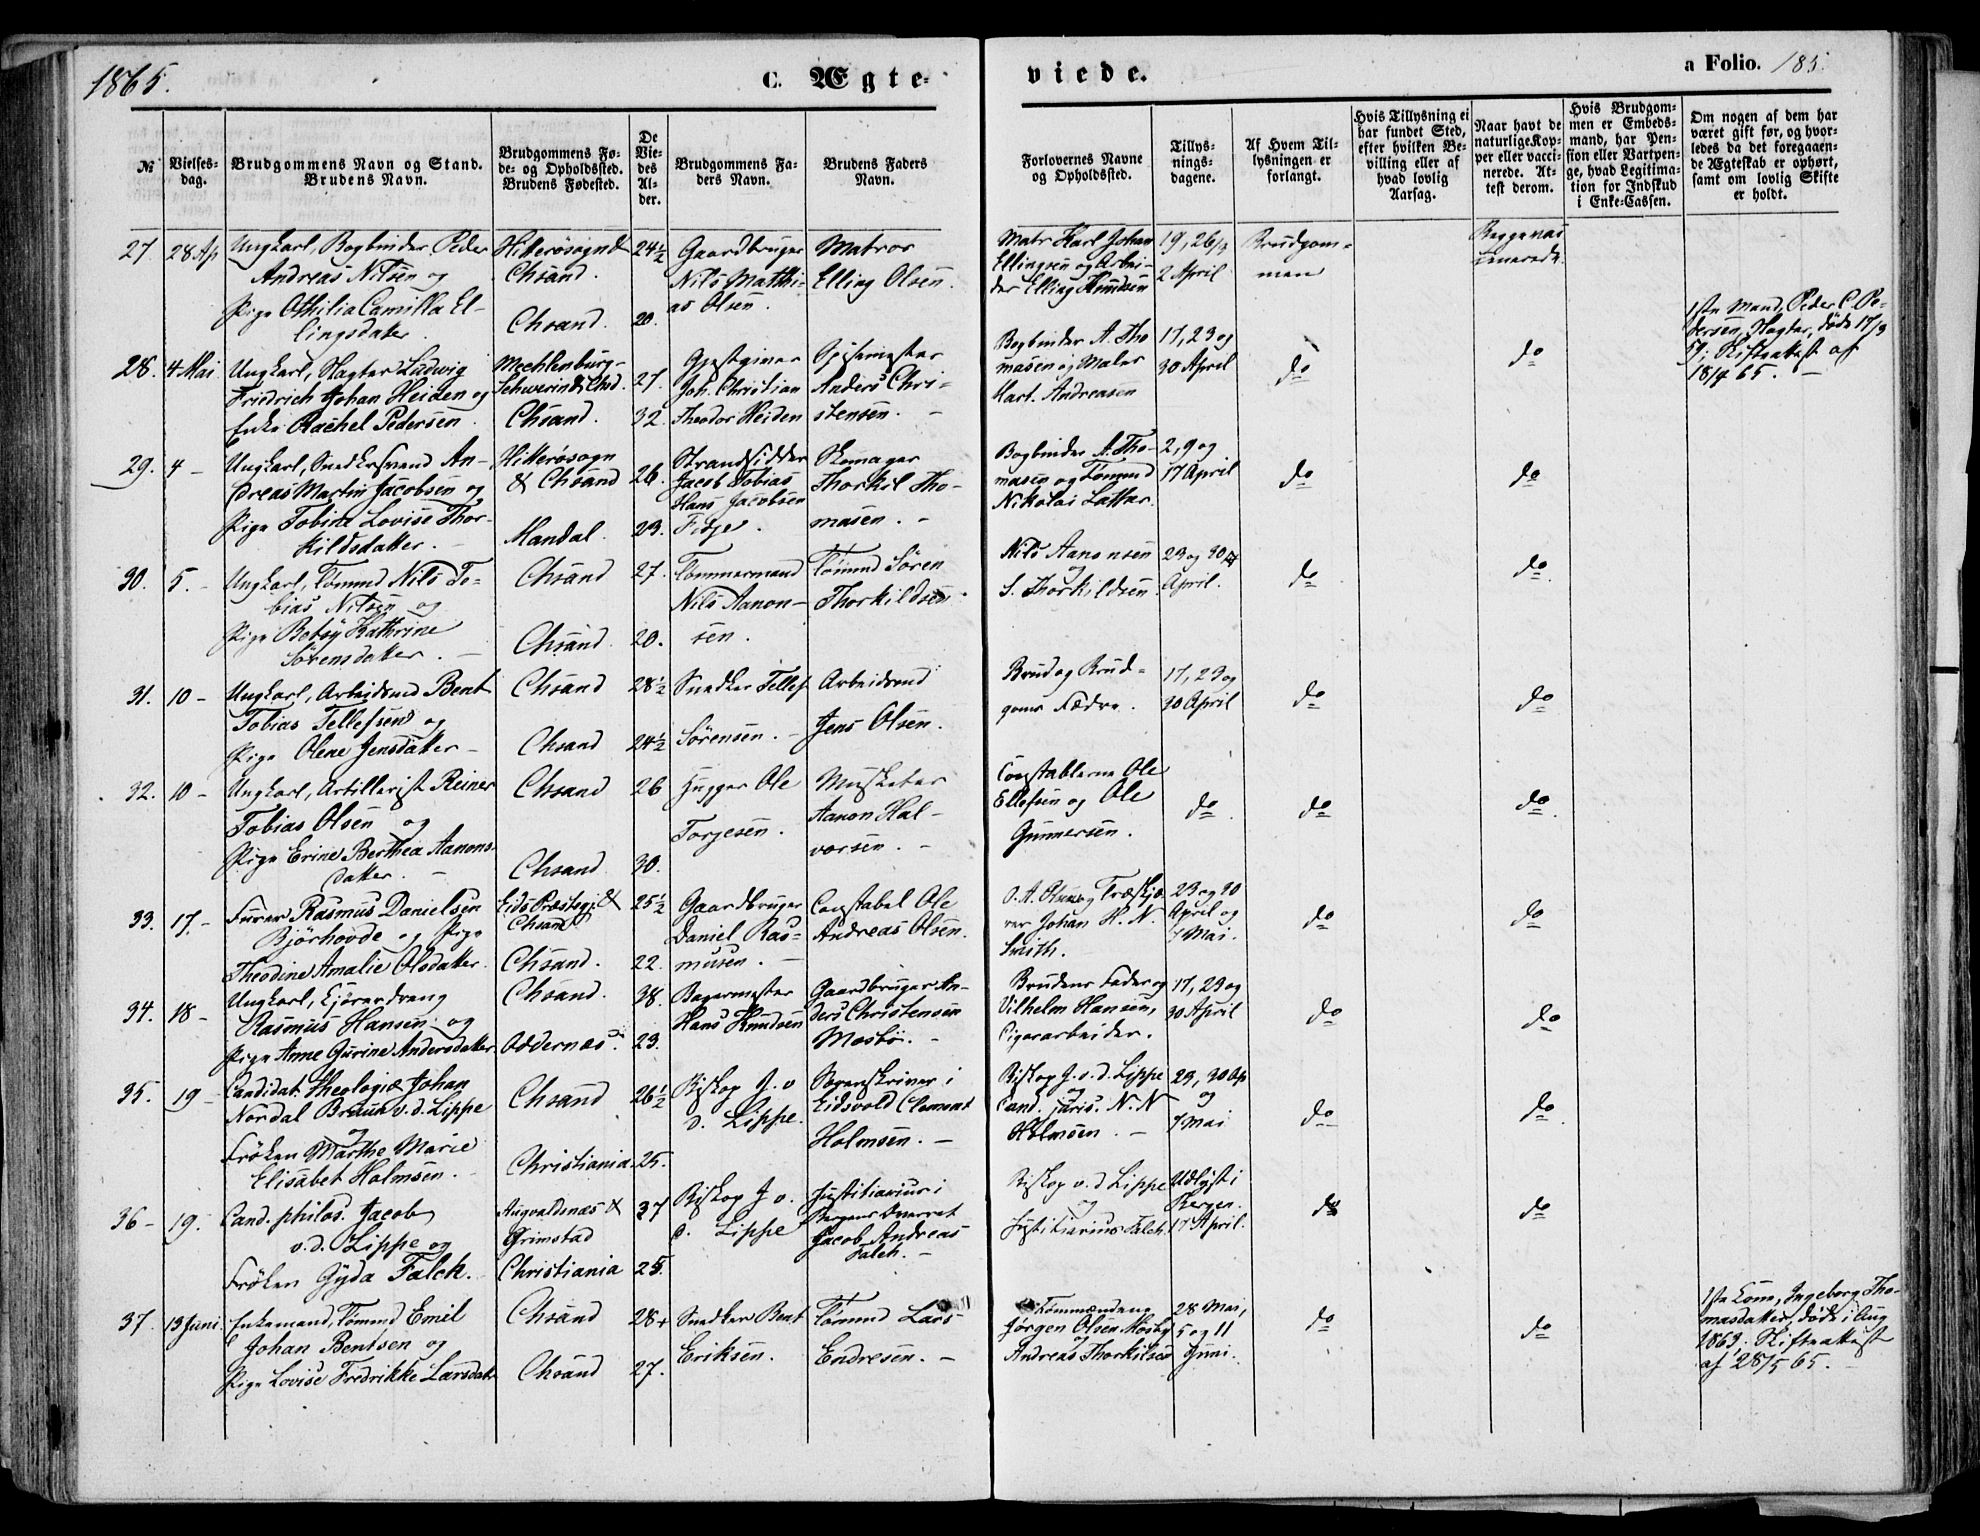 1865.
C. Ægte-
viede.
a Folio. 185.
No
Vielses-
dag.
Brudgommens Navn og Stand.
Brudens Navn.
Brudgommens Fø-
de- og Opholdssted.
Brudens Fødested.
De
Vie-
des
Al-
der.
Brudgommens Fa-
ders Navn.
Brudens Faders
Navn.
Forlovernes Navne
og Opholdssted.
Tillys-
nings-
dagene.
Af Hvem Til-
lysningen er
forlangt.
Hvis Tillysning ei
har fundet Sted,
efter hvilken Be-
villing eller af
hvad lovlig
Aarsag.
Naar havt de
naturlige Kop-
per eller vacci-
nerede. At-
test derom.
Hvis Brudgom-
men er Embeds-
mand, har Pen-
sion eller Vartpen-
ge, hvad Legitima-
tion for Indskud
i Enke-Cassen.
Om nogen af dem har
været gift før, og hvor-
ledes da det foregaaen-
de Ægteskab er ophørt,
samt om lovlig Skifte
er holdt.
27. 28 Ap Ungkarl, Bogbinder Peder
Andreas Nilsen og
Pige Othilia Camilla El-
lingsdatter.
Hitterøsogn &
Chsand.
Chsand.
24½
20.
Gaardbruger
Nils Matthi-
as Olsen.
Matros
Elling Olsen.
Matr Karl Johan
Ellingsen og Arbei-
der Elling Knudsen
19, 26/3
2 April
Brudgom-
men
28. 4 Mai Ungkarl, Slagter Ludwig
Friedrich Johan Heiden og
Enke Rachel Pedersen.
Mechlenburg-
Schwerin & Chsd.
Chsand.
27.
32.
Gjestgiver
Joh. Christian
Theodor Heiden
Spisemester
Anders Chri-
stensen. -
Bogbinder A. Tho
masen og Maler
Hart. Andreasen
17, 23 og
30 April
do
do
1ste Mand, Peder C. Pe-
dersen, Slagter, døde 17/9
Skifteattest af
18/4 65. -
29. 4 - Ungkarl, Snedkersvend An-
dreas Martin Jacobsen og
Pige Tobine Lovise Thor-
kildsdatter. -
Hitterøsogn
& Chsand
Mandal.
26.
23.
Strandsidder
Jacob Tobias
Hans Jacobsen
Fidje.
Skomager
Thorkil Tho-
masen. -
Bogbinder A. Tho-
masen og Tømmd
Nikolai Latter.
2, 9 og
17 April
do
do
30. 5. - Ungkarl, Tømmd Nils To-
bias Nilsen og
Pige Betsy Kathrine
Sørensdatter. -
Chsand
Chsand.
27.
20.
Tømmermand
Nils Aanon-
sen.
Tømmd Søren
Thorkildsen.
Nils Aanonsen
og
S. Thorkildsen
23 og 30
April.
do
do
31. 10 - Ungkarl, Arbeidsmd Bent
Tobias Tellefsen og
Pige Olene Jensdatter -
Chsand
Chsand
28½
24½
Snedker Tellef
Sørensen. -
Arbeidsmd
Jens Olsen.
Brud og Brud-
goms Fædre.
17, 23 og
30 April
do
do
32. 10 - Ungkarl, Artillerist Reiner
Tobias Olsen og
Pige Erine Berthea Aanons-
datter. -
Chsand
Chsand
26
30.
Hugger Ole
Torjesen.
Musketer
Aanon Hal-
vorsen. -
Constablerne Ole
Ellefsen og Ole
Gunnersen.
do
do
do
33. 17 - Furer Rasmus Danielsen
Bjørhovde og Pige
Theodine Amalie Olsdatter.
Eids Præstegj. &
Chsand
Chsand.
25½
22.
Gaardbruger
Daniel Ras-
musen. -
Constabel Ole
Andreas Olsen.
O. A. Olsen og Træskjæ-
rer Johan H. N.
Smith.
23 og 30
April og
7 Mai.
do
do
34. 18 - Ungkarl, Kjøredreng
Rasmus Hansen og
Pige Anne Gurine Andersdatter
Chsand.
Oddernæs.
38.
23.
Bagermester
Hans Knudsen
Gaardbruger An-
ders Christensen
Mosbø. -
Brudens Fader og
Vilhelm Hansen,
Cigararbeider.
17, 23 og
30 April
do
do
35. 19 - Candidat. theologiæ Johan
Nordal Bruun v. d. Lippe
og
Frøken Marthe Marie
Elisabet Holmsen. -
Chsand
Christiania.
26½
25.
Biskop J. v
d. Lippe.
Sorenskriver i
Eidsvold Clement
Holmsen. -
Biskop J. v. d. Lippe
og
Cand. juris. N. N
Holmsen. -
23, 30 Ap
og
7 Mai
do
do
36 - 19. Cand. philos. Jacob
v. d. Lippe og
Frøken Gyda Falch.
Augvaldsnæs &
Grimstad
Christiania
37
25.
Biskop J v.
d. Lippe
Justitiarius i
Bergens Overret
Jacob Andreas
Falch. -
Biskop v. d Lippe
og
Justitiarius Falch.
Udlyst i
Bergen
17 April.
do
do
37. 13 Juni. Enkemand, Tømmd Emil
Johan Bentsen og
Pige Lovise Fredrikke Larsdatt
Chsand
Chsand
28+
27.
Snedker Bent
Eriksen.
Tømmd Lars
Endresen. -
Tømmændene
Jørgen Olsen Mosby
og
Andreas Thorkilsen
28 Mai,
5 og 11
Juni.
do
do
1ste Kone, Ingeborg Tho-
masdatter, døde i Aug
1863. Skifteattest
af 28/5 65. -